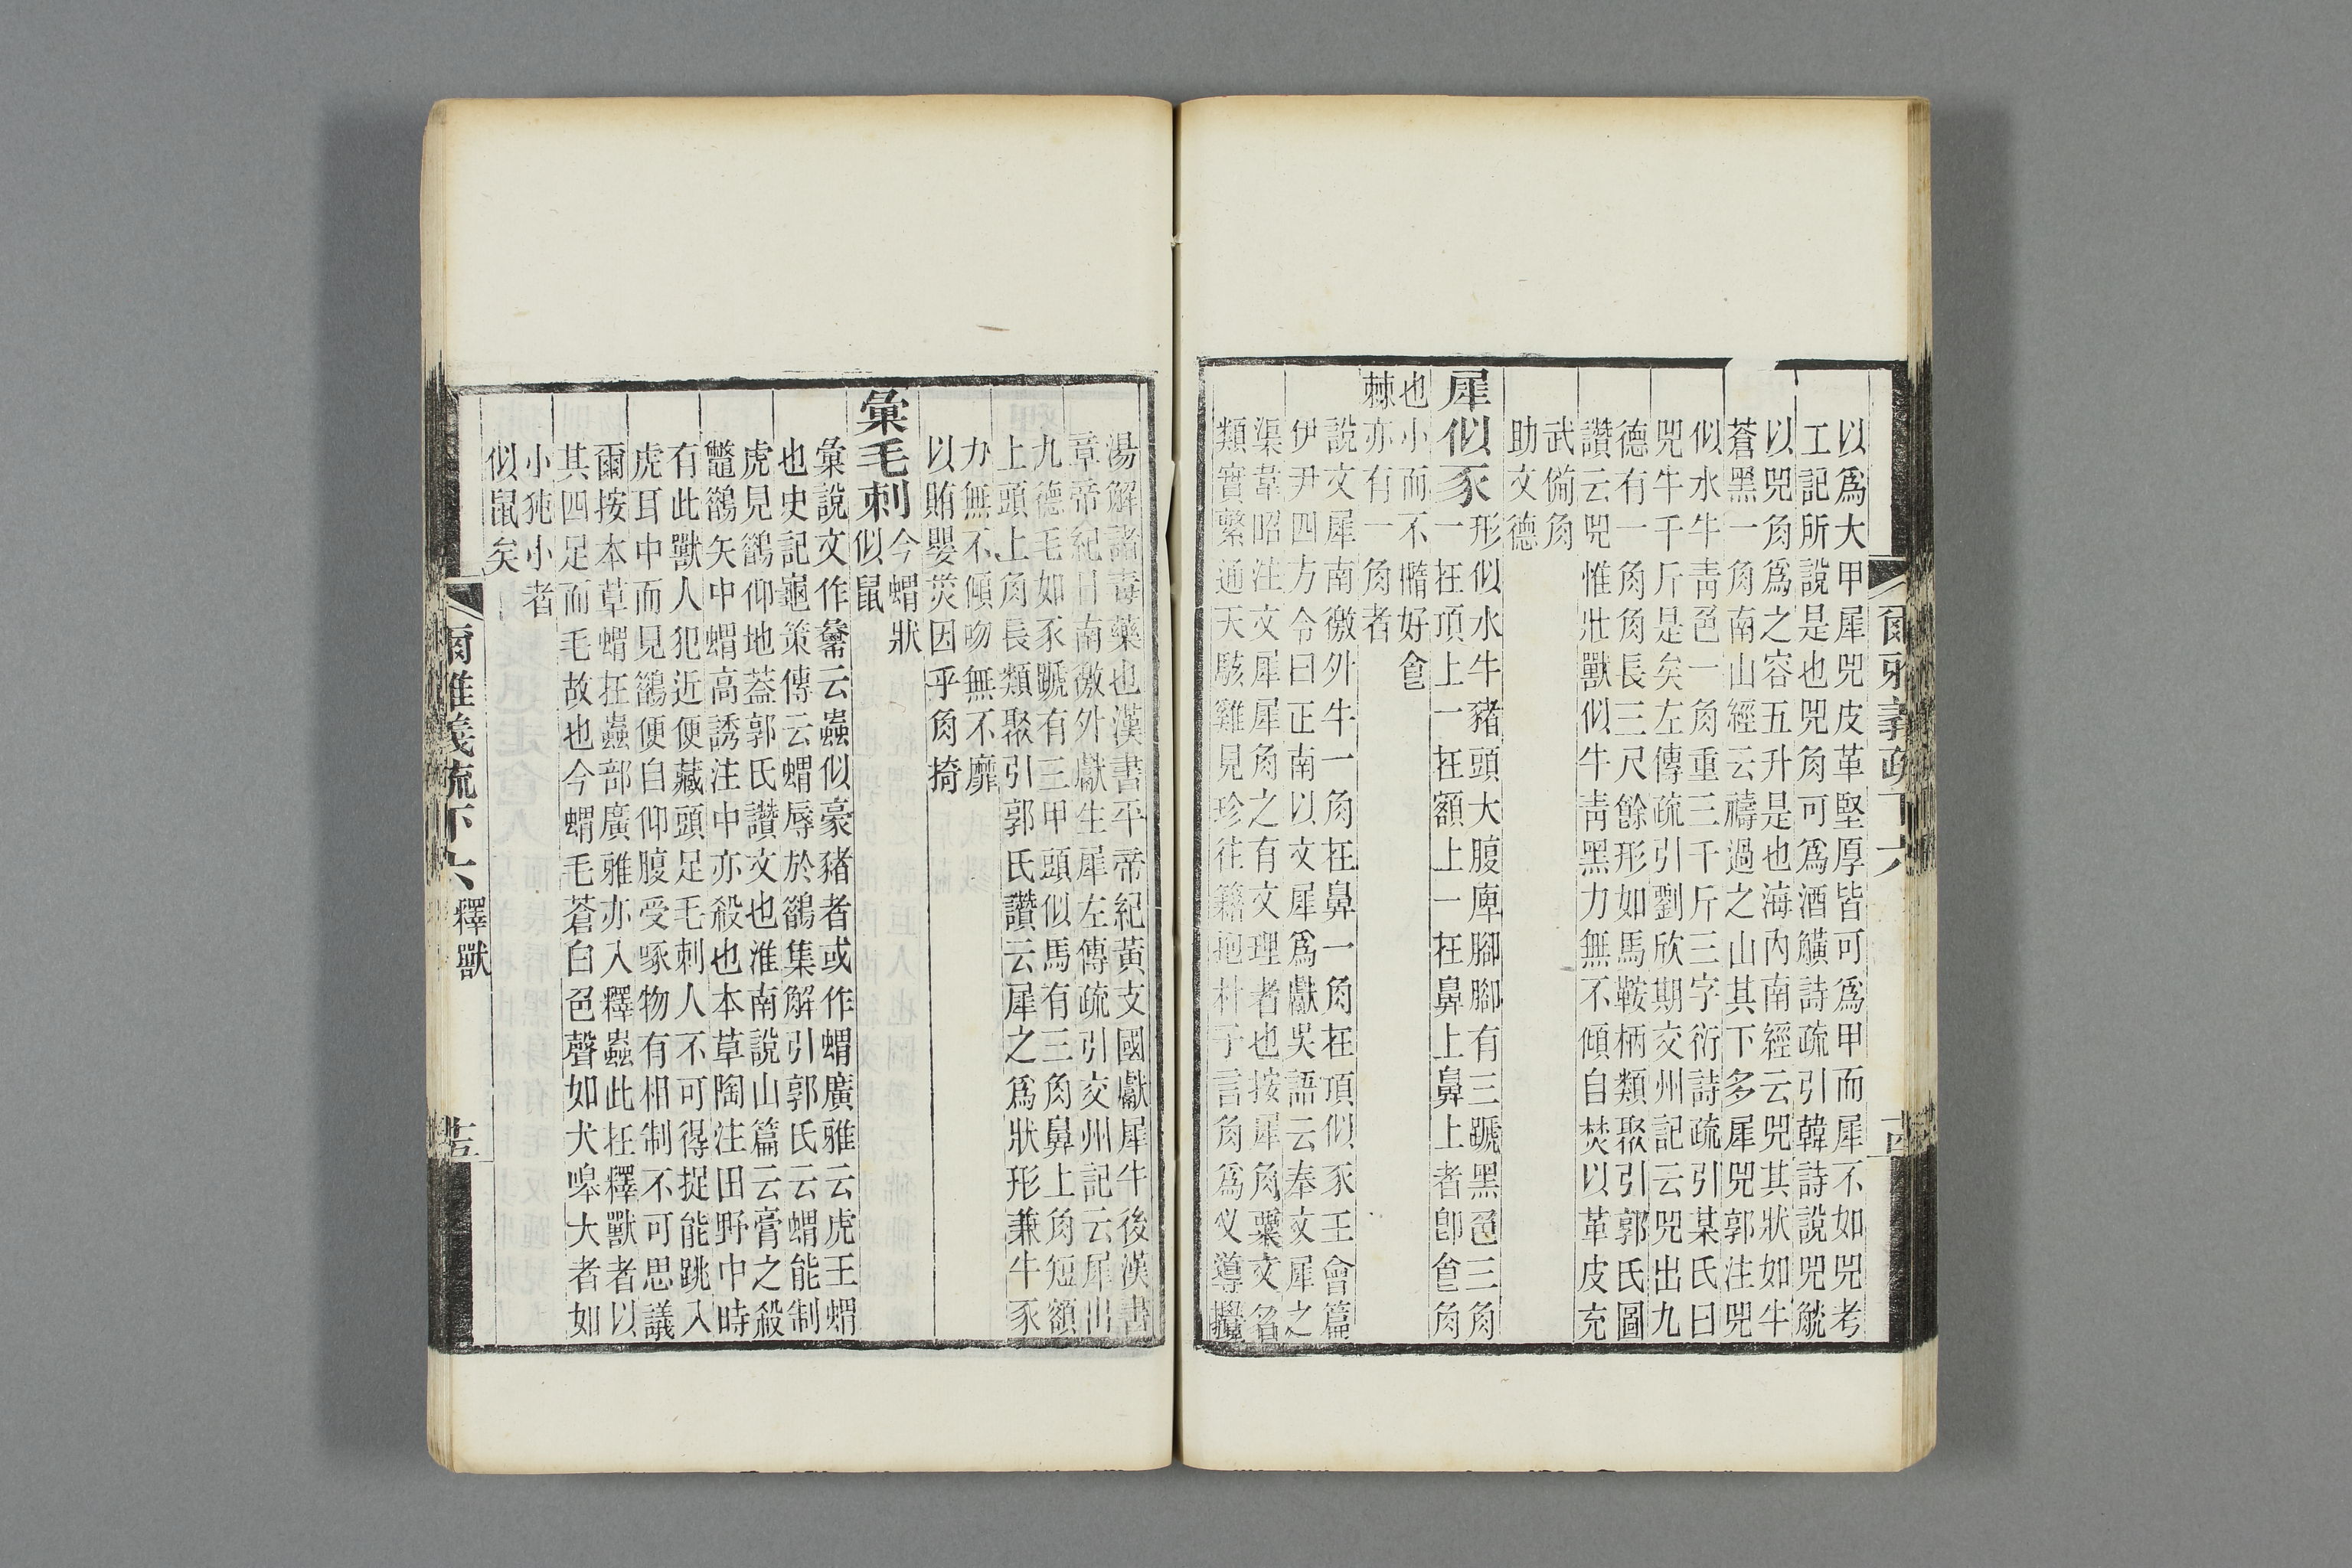 以爲大甲犀兕皮革堅厚皆可爲甲而犀不如兕考
工記所說是也兕角可爲酒觵詩疏引韓詩說兕觥
以兕角爲之容五升是也海內南經云兕其狀如牛
蒼黑一角南山經云禱過之山其下多犀兕郭注兕
似水牛靑色一角重三千斤三字衍詩疏引某氏曰
兕牛千斤是矣左傳疏引劉欣期交州記云兕出九
德有一角角長三尺餘形如馬鞍柄類聚引郭氏圖
讚云兕惟壯獸似牛靑黑力無不傾自焚以革皮充
武備角
助文德
犀似豕
形似水牛豬頭大腹庳腳腳有三蹏黑色三角
一在頂上一在額上一在鼻上鼻上者卽食角
也小而不橢好食
棘亦有一角者
說文犀南徼外牛一角在鼻一角在頂似豕王會篇
伊尹四方令曰正南以文犀爲獻吳語云奉文犀之
渠韋昭注文犀犀角之有文理者也按犀角粟文名
類實繁通天駭雞見珍往籍抱朴子言角爲义導攪
爾雅義疏下六
古
湯解諸毒藥也漢書平帝紀黃支國獻犀牛後漢書
章帝紀日南徼外獻生犀左傳疏引交州記云犀出
九德毛如豕蹏有三甲頭似馬有三角鼻上角短額
上頭上角長類聚引郭氏讚云犀之爲狀形兼牛豕
力無不傾吻無不靡
以賄嬰災因乎角掎
彙毛刺
今蝟狀
似鼠
彙說文作㣇云蟲似豪豬者或作蝟廣雅云虎王蝟
也史記龜策傳云蝟辱於鵒集解引郭氏云蝟能制
虎見鵒仰地蓋郭氏讚文也淮南說山篇云膏之殺
鼈鵒矢中蝟高誘注中亦殺也本草陶注田野中時
有此獸人犯近便藏頭足毛刺人不可得捉能跳入
虎耳中而見鵒便自仰腹受啄物有相制不可思議
爾按本草蝟在蟲部廣雅亦入釋蟲此在釋獸者以
其四足而毛故也今蝟毛蒼白色聲如犬嘷大者如
小㹠小者
似鼠矣
爾雅義疏下六
釋獸